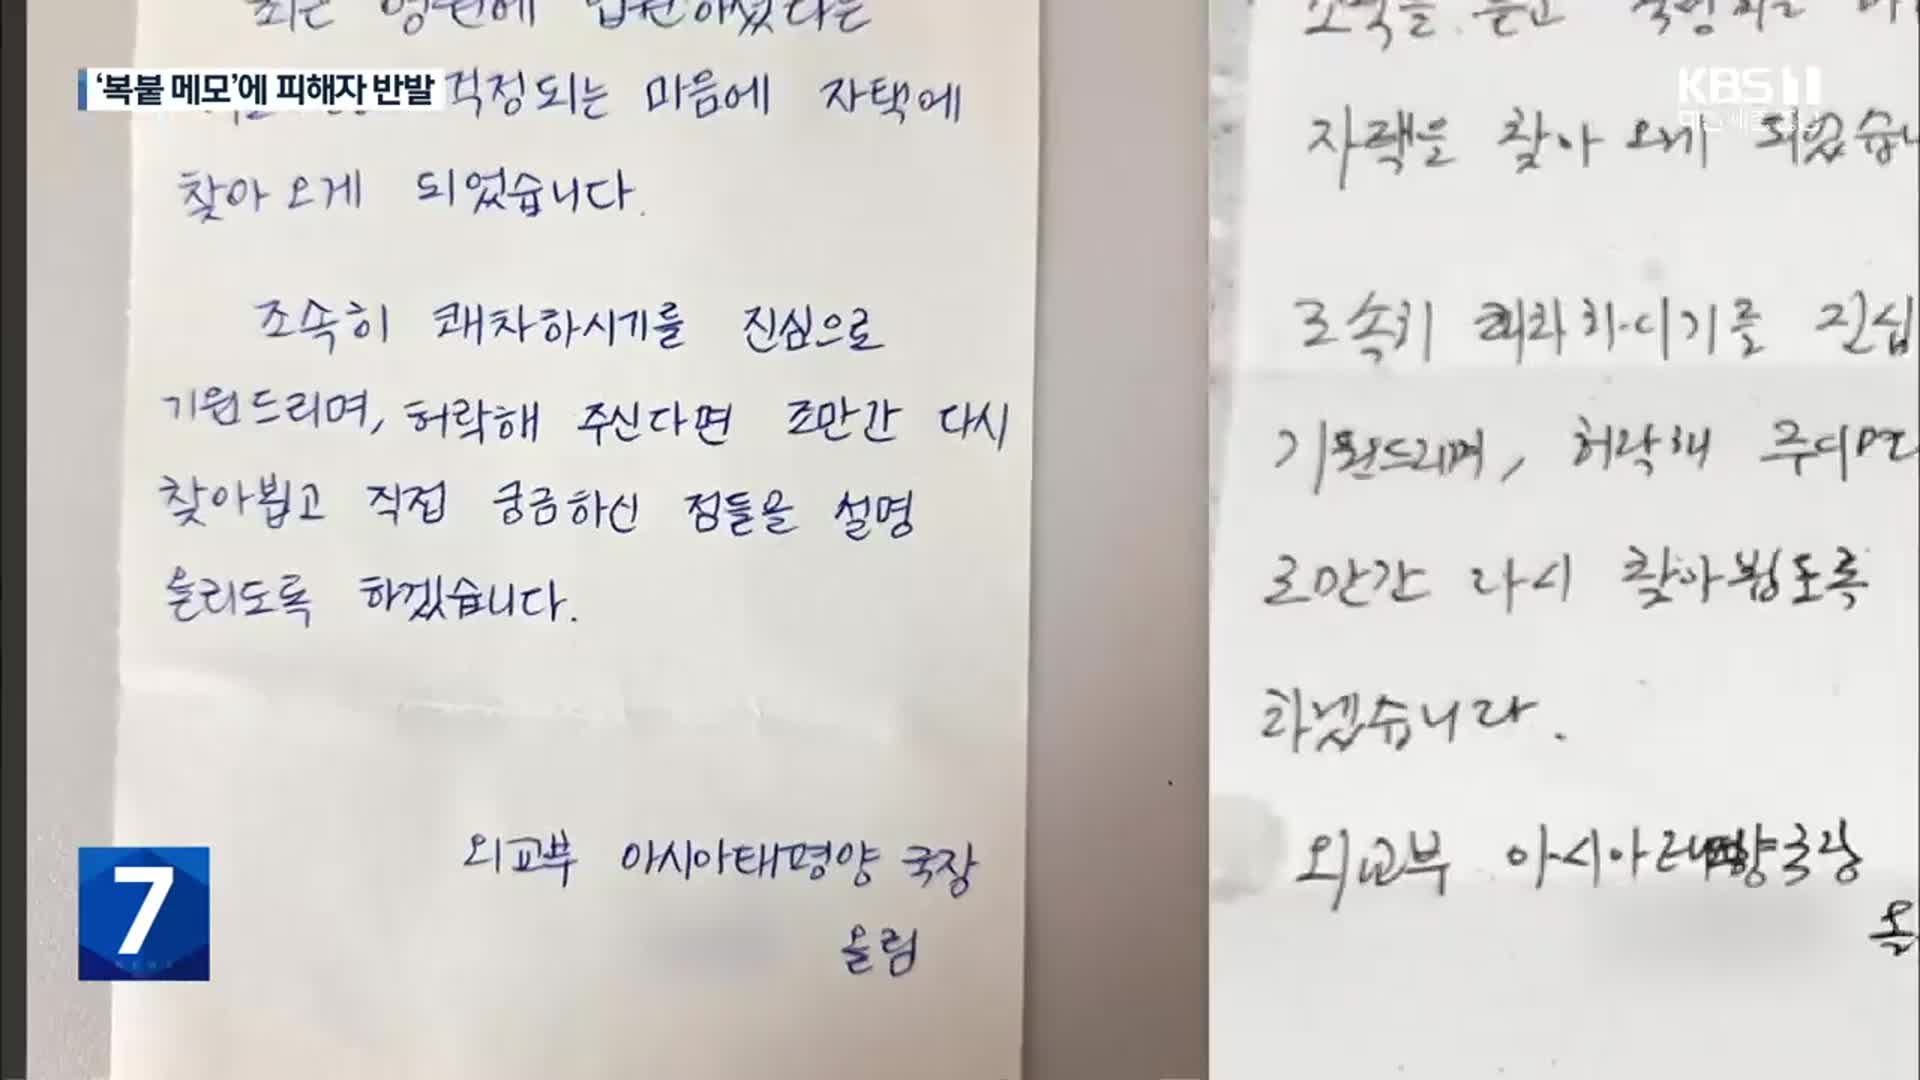 '복붙 메모'에 피해자 반발
KBS 1
걱정되는 마음에 자택에
찾아 오게 되었습니다.
조속히 쾌차하시기를 진심으로
기원드리며, 허락해 주신다면 조만간 다시
찾아뵙고 직접 궁금하신 점들을 설명
올리도록 하겠습니다.
외교부 아시아태평양 국장
올림
자택을 찾아 오게 되었습니
조속히 쾌차하시기를 진심
기원드리며, 허락해 주시면
조만간 다시 찾아뵙도록
하겠습니다.
외교부 아시아태평양국장
올
7
NEWS